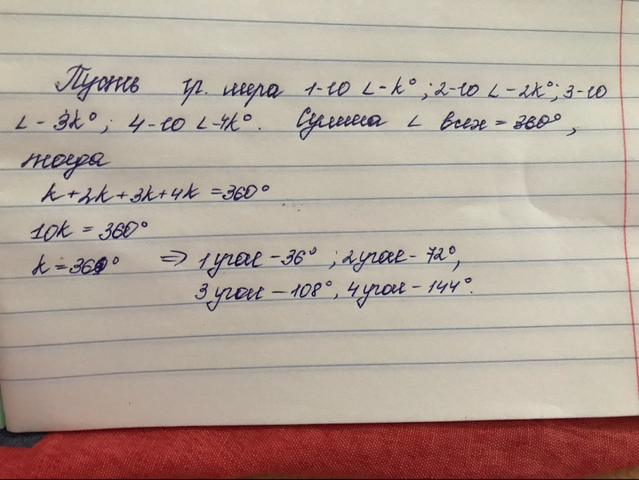 Пусть гр. мера 1-го ∠-k°; 2-го ∠-2k°; 3-го
∠-3k°; 4-го ∠-4k°. Сумма ∠ всех = 360°,
тогда
k+2k+3k+4k=360°
10k=360°
k=36° ⇒ 1 угол-36°; 2 угол-72°,
3 угол-108°, 4 угол-144°.